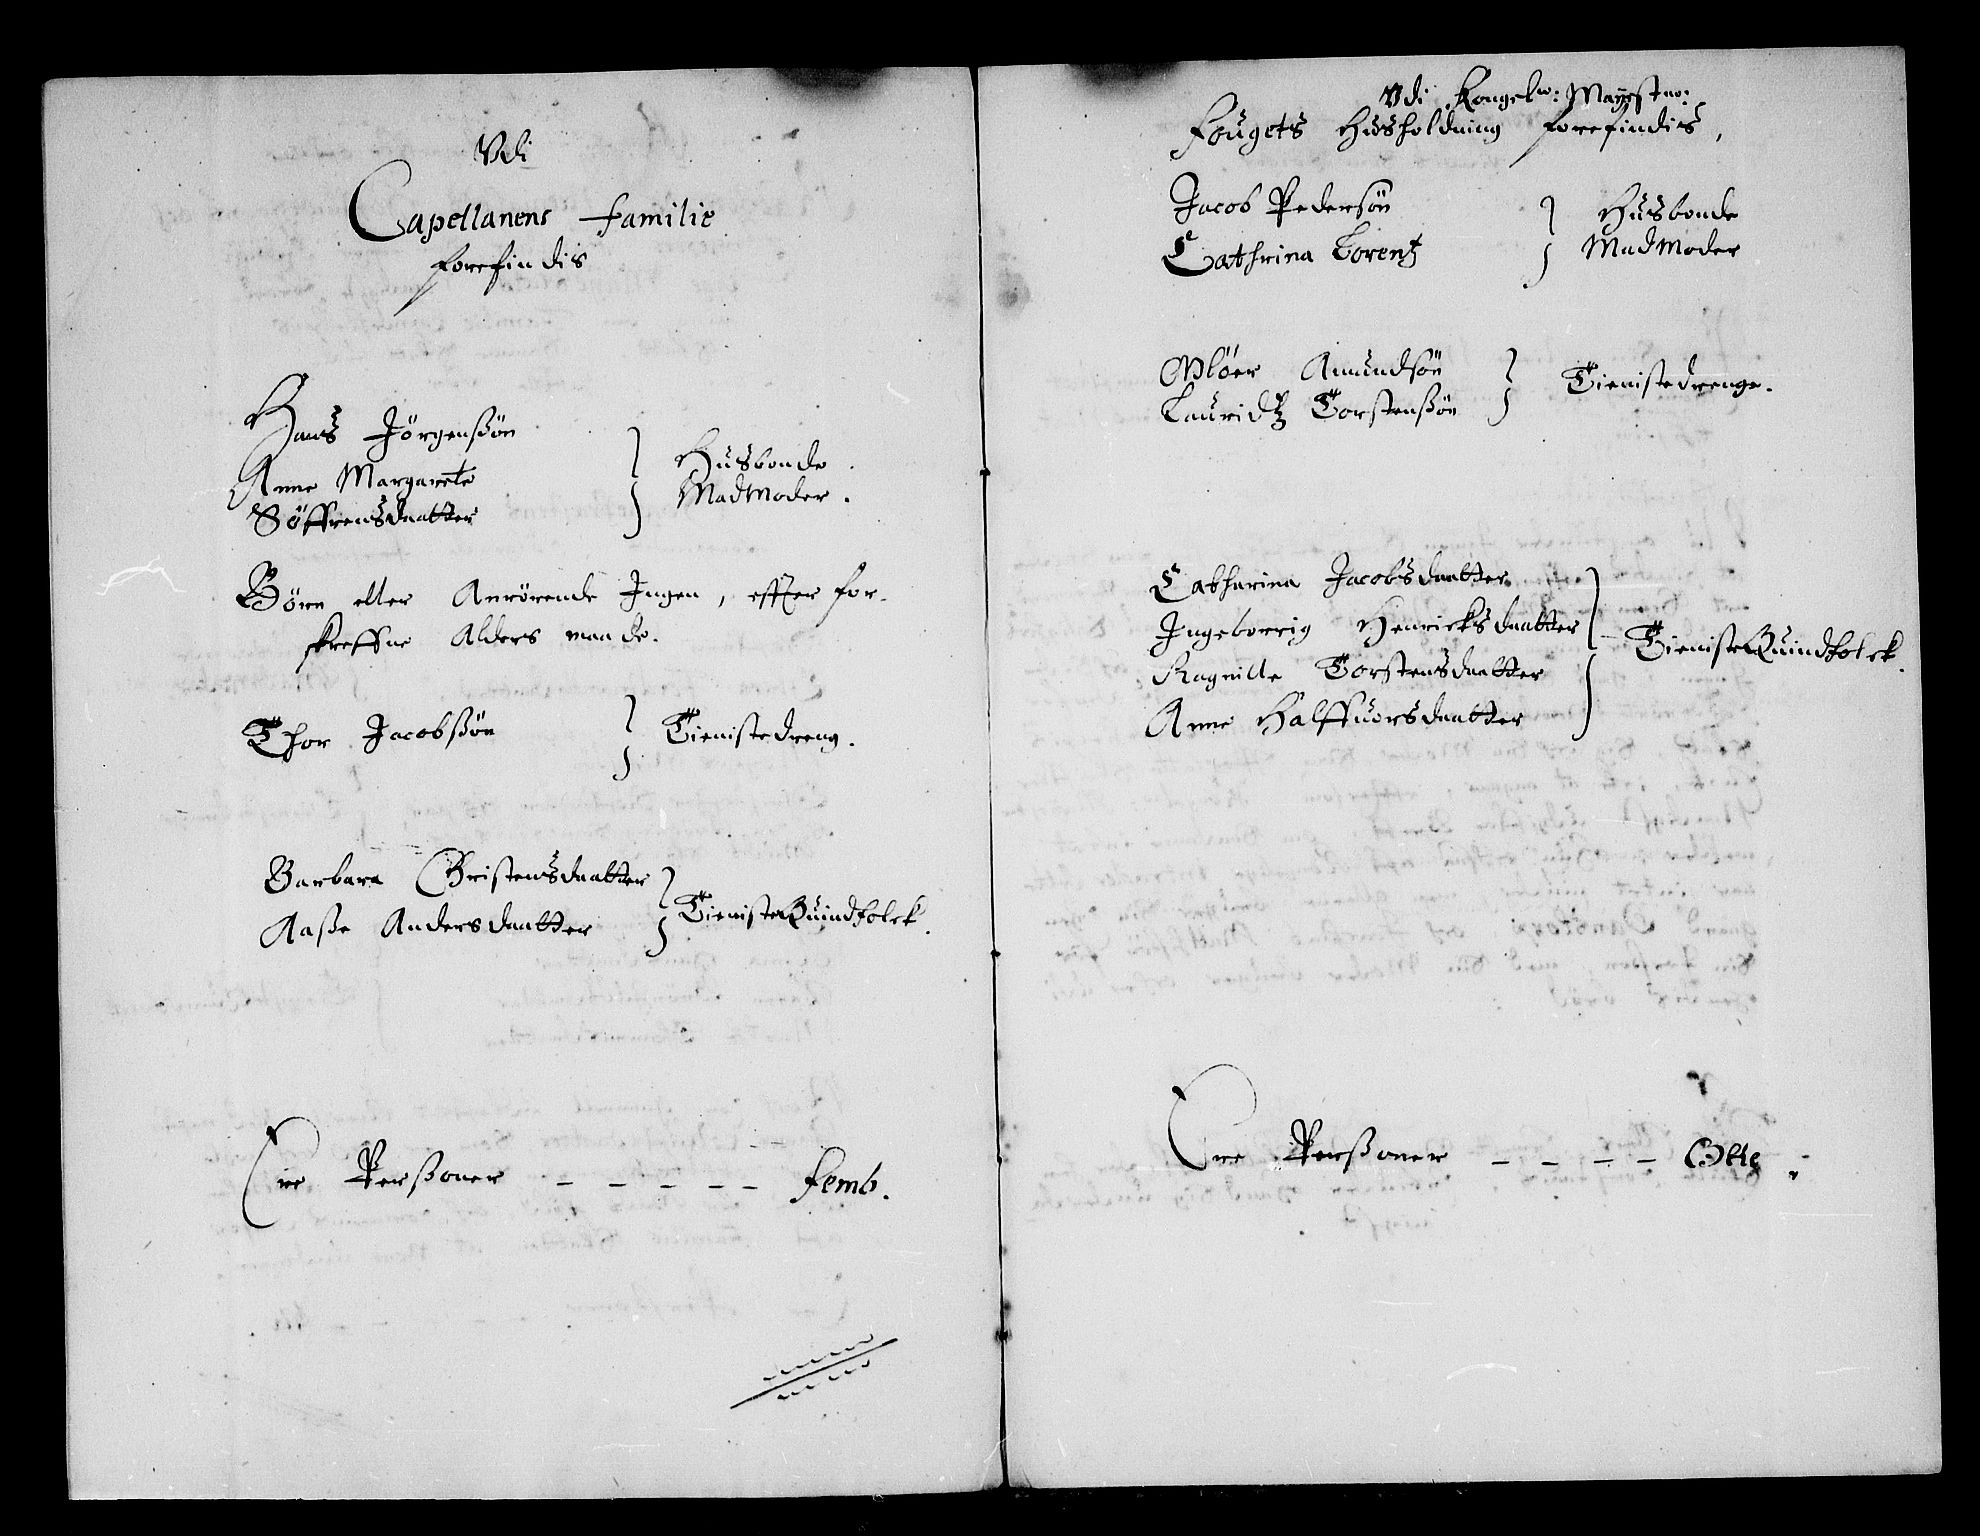 Vdi
Capellanens familie
forefindis
Hans Jörgensßön
Anne Margarete
Söffrensdaatter
} Husbonde
Madmoder.
Börn eller Anrörende Ingen, effter for-
skreffne Alders maade.
Thor Jacobßön } Tienistedreng.
Barbara Christensdaatter
Aaße Andersdaatter
} TienisteQuindfolck.
Ere Perßoner - - - - - femb.
Vdi Kongelw: Mayestw:
Fougets Husholdning forefindis,
Jacob Pedersön } Husbonde
Cathrina Lorentz } Madmoder
Oluer Amundsön
Lauridtz Torstensßön
} Tienistedrenge.
Catharina Jacobsdaatter
Ingeborrig Henricksdaatter
Ragnille Torstensdaatter
Anne Halffuorsdaatter
} TienisteQuindfolck.
Ere Perßoner - - - - Otte.